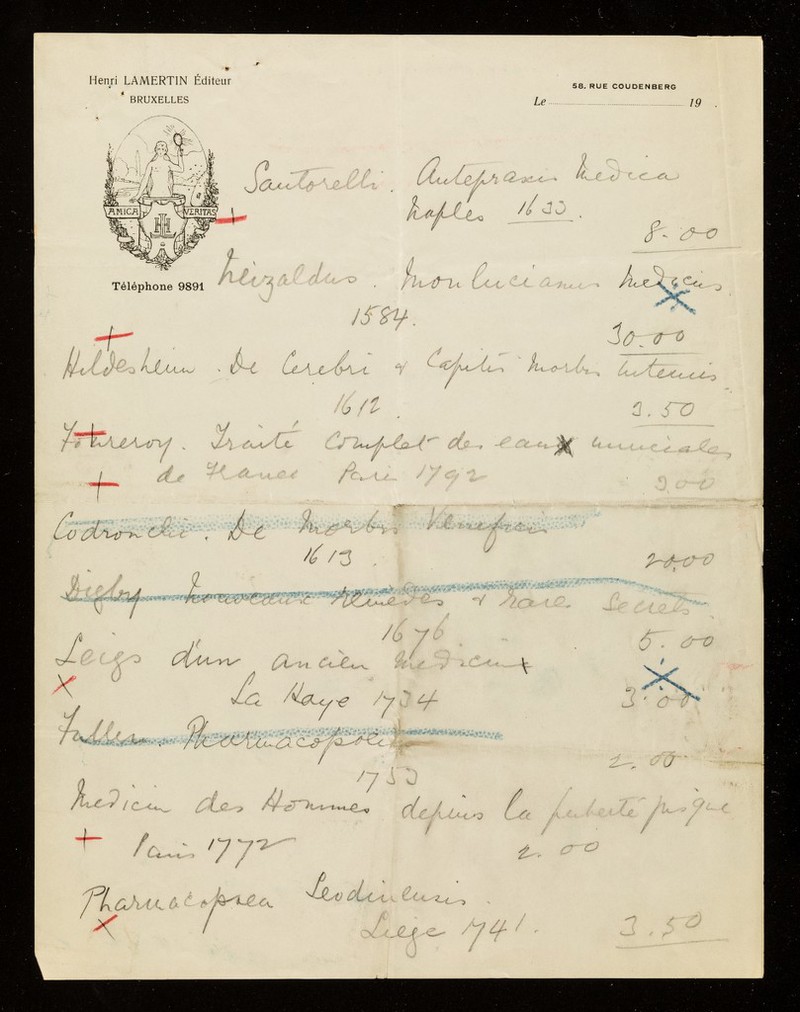 Henri LAMERTIN Éditeur
BRUXELLES
58, RUE COUDENBERG
Le 19 .
AMICA VERITAS
HL
Téléphone 9891
Santorelli. Antepraxis Medica
Naples 1633.
8.00
Meizaldus. Monlucianus Medicus.
1584.
30.00
Hildesheim. De Cerebri & Capitis Morbis Internis.
1612.
3.50
Fourcroy. Traité Complet des eaux minerales
de France Paris 1792
3.00
Codronchi. De Morbis Veneficis
1613.
20.00
Digby Nouveaux Remèdes & Rares Secrets.
1676
5.00
Legs d'un ancien Medicin
La Haye 1734
3.00
Fuller. Pharmacopoeia
1753
2.00
Medicin des Hommes depuis la puberté jusque
Paris 1772
2.00
Pharmacopoea Leodiensis.
Liege 1741.
3.50